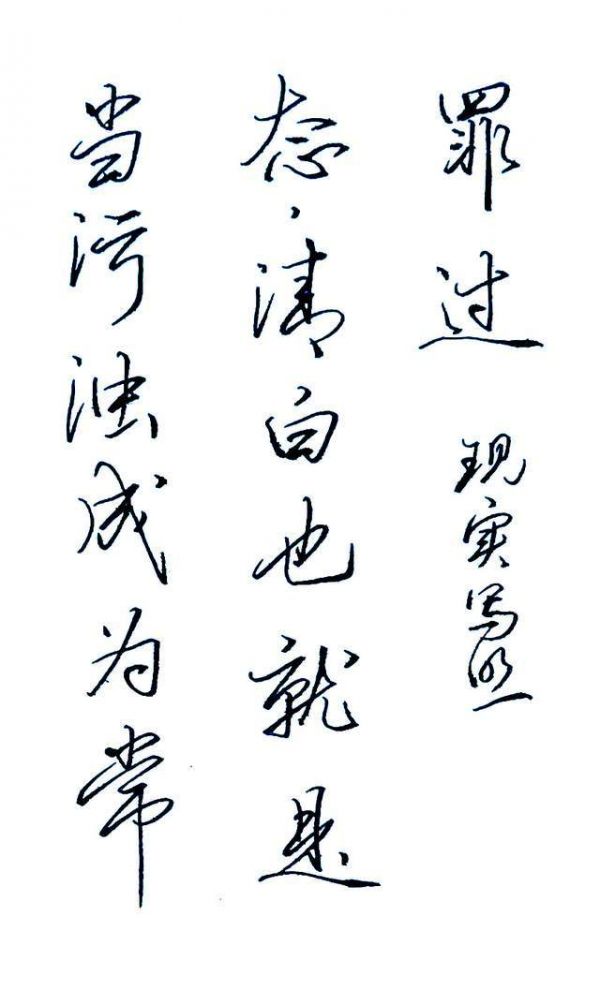 当污浊成为常
态，清白也就是
罪过
现实写照